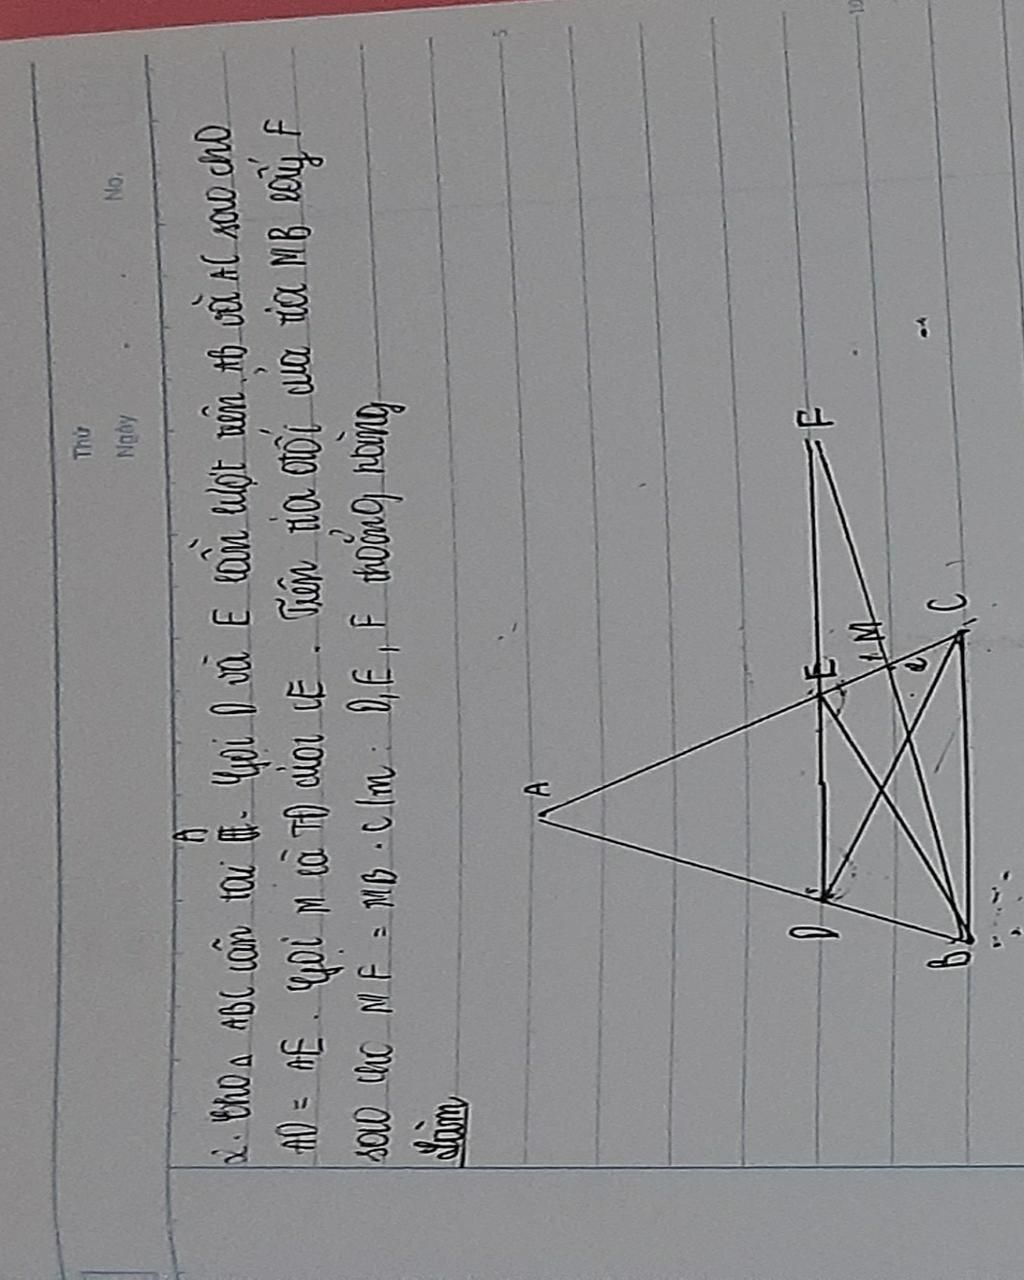 Thứ
Ngày
No.
2. Cho Δ ABC cân tại A. Gọi D và E lần lượt trên AB và AC sao cho
AD = AE. Gọi M là TĐ của CE. Trên tia đối của tia MB lấy F
sao cho MF = MB. C/m. D, E, F thẳng hàng
Làm
A
D
E
F
1
M
2
B
C
5
10